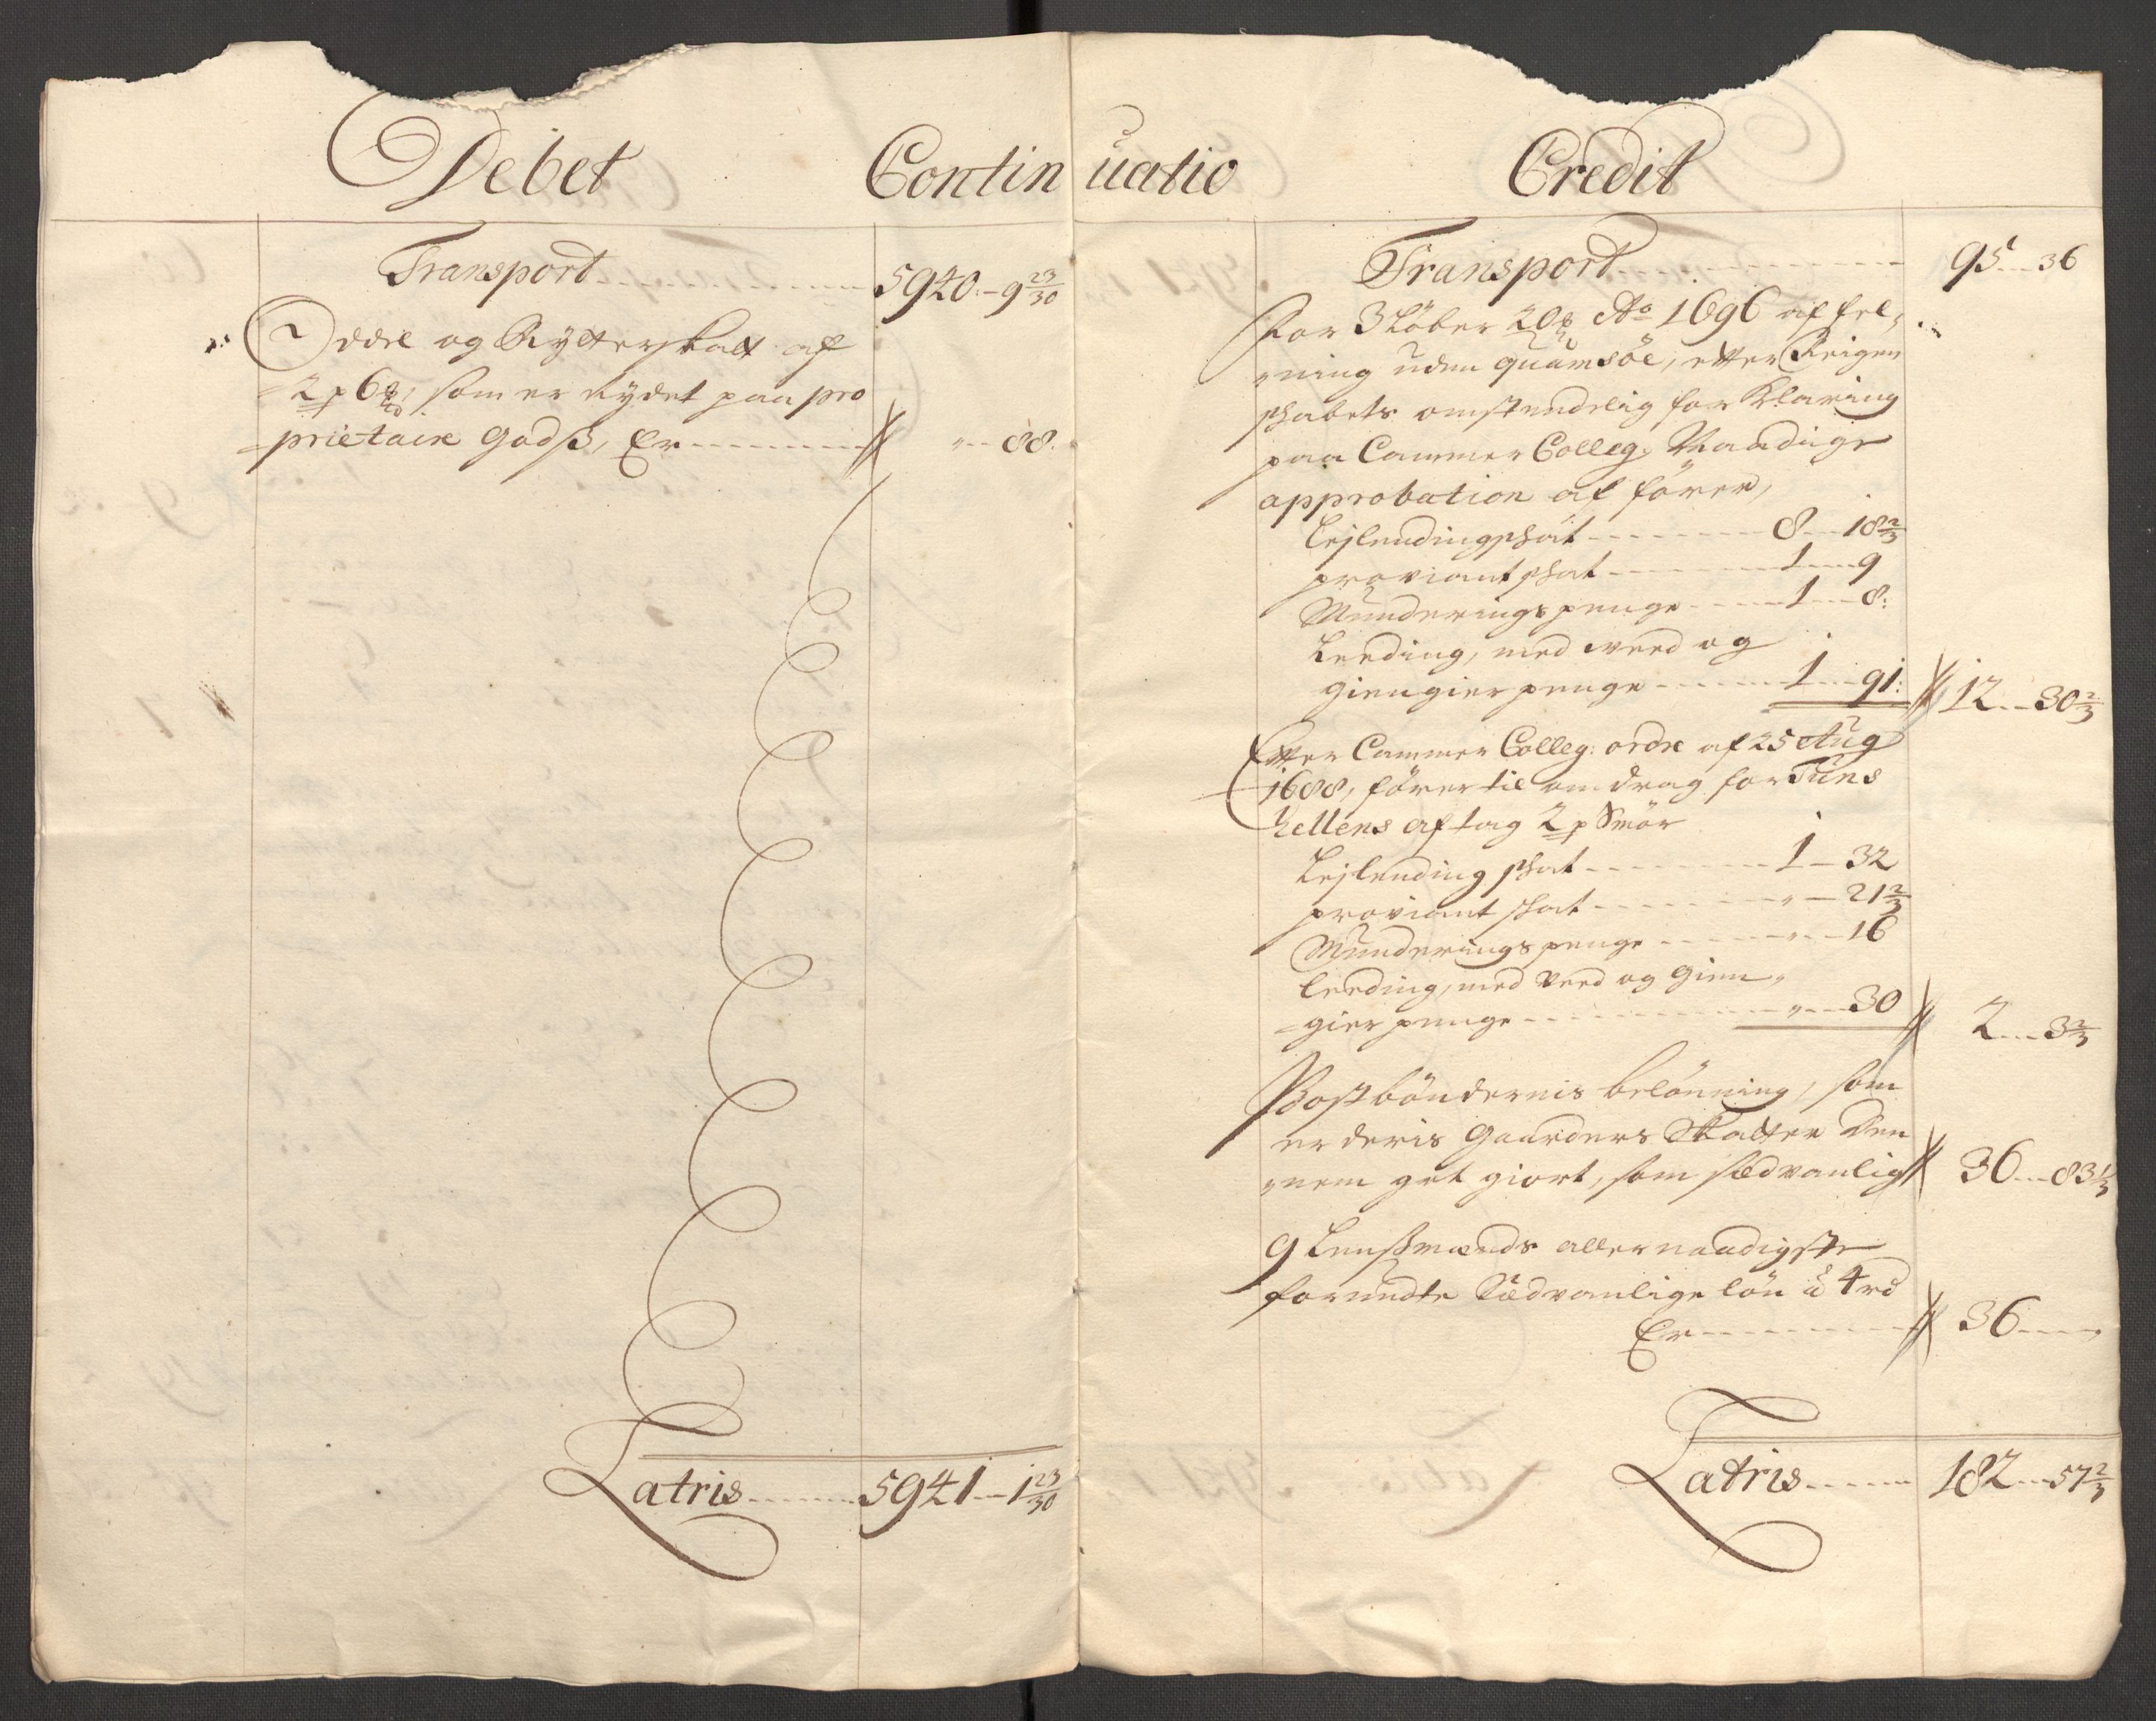 Debet Continuatio Credit
Transport 5940 - 9 23/30
Oddel og Rytterskatt af
2 p 6 , som er nydet paa pro
prietaire Godß, Er " - 88.
Latris 5941 - 1 23/30
Transport 95 - 36
For 3 Löber 20 Ao 1696 affel,
ning uden quamsöe, efter Reigen
skabets omstendelig for Klaring
paa Cammer Colleg: Naadige
approbation af förer,
Lejlendingskat 8 - 18 2/3
proviantskat 1 - 9
Munderingspenge 1 - 8:
Leeding, med verd og
giengierpenge 1 - 91: 12 - 30 2/3
Effter Cammer Colleg: ordre af 25 Aug
1688, förer til omdrag for Tuns
hellens aftag 2 p Smör
Lejlending skat 1 - 32
proviant skat " - 21 2/3
Munderingspenge " - 16
Leeding, med Verd og Gien,
gierpenge " - 30 2 - 3 2/3
Postböndernis belönning, som
er deris Gaarders Skatter den
nem got giort, som sædvanligt 36 - 83 1/3
9 Lenßmænds allernaadigste
forundte Sædvanlige lön a 4 rd
Er 36 - "
Latris 182 - 57 2/3